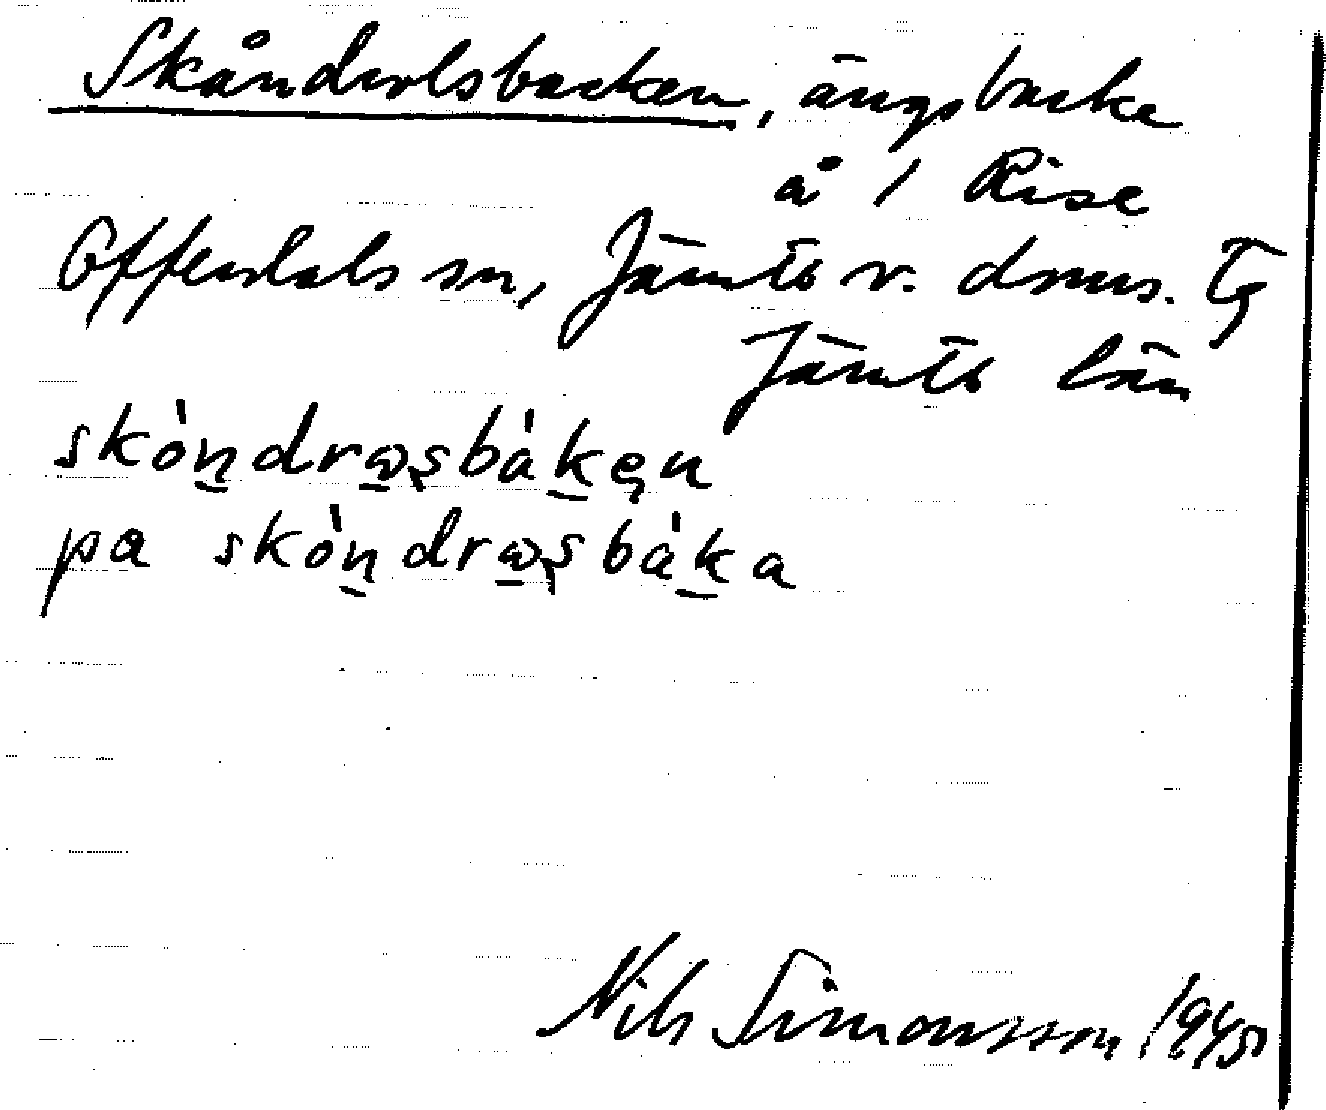 Skåndrolsbacken, ängsbacke
å 1 Rise
Offerdals sn, Jämts v. doms. Tg
Jämts län
skòn̠dra̠sbàk̠en
pa skòn̠dra̠sbàk̠a
Nils Simonsson 1945